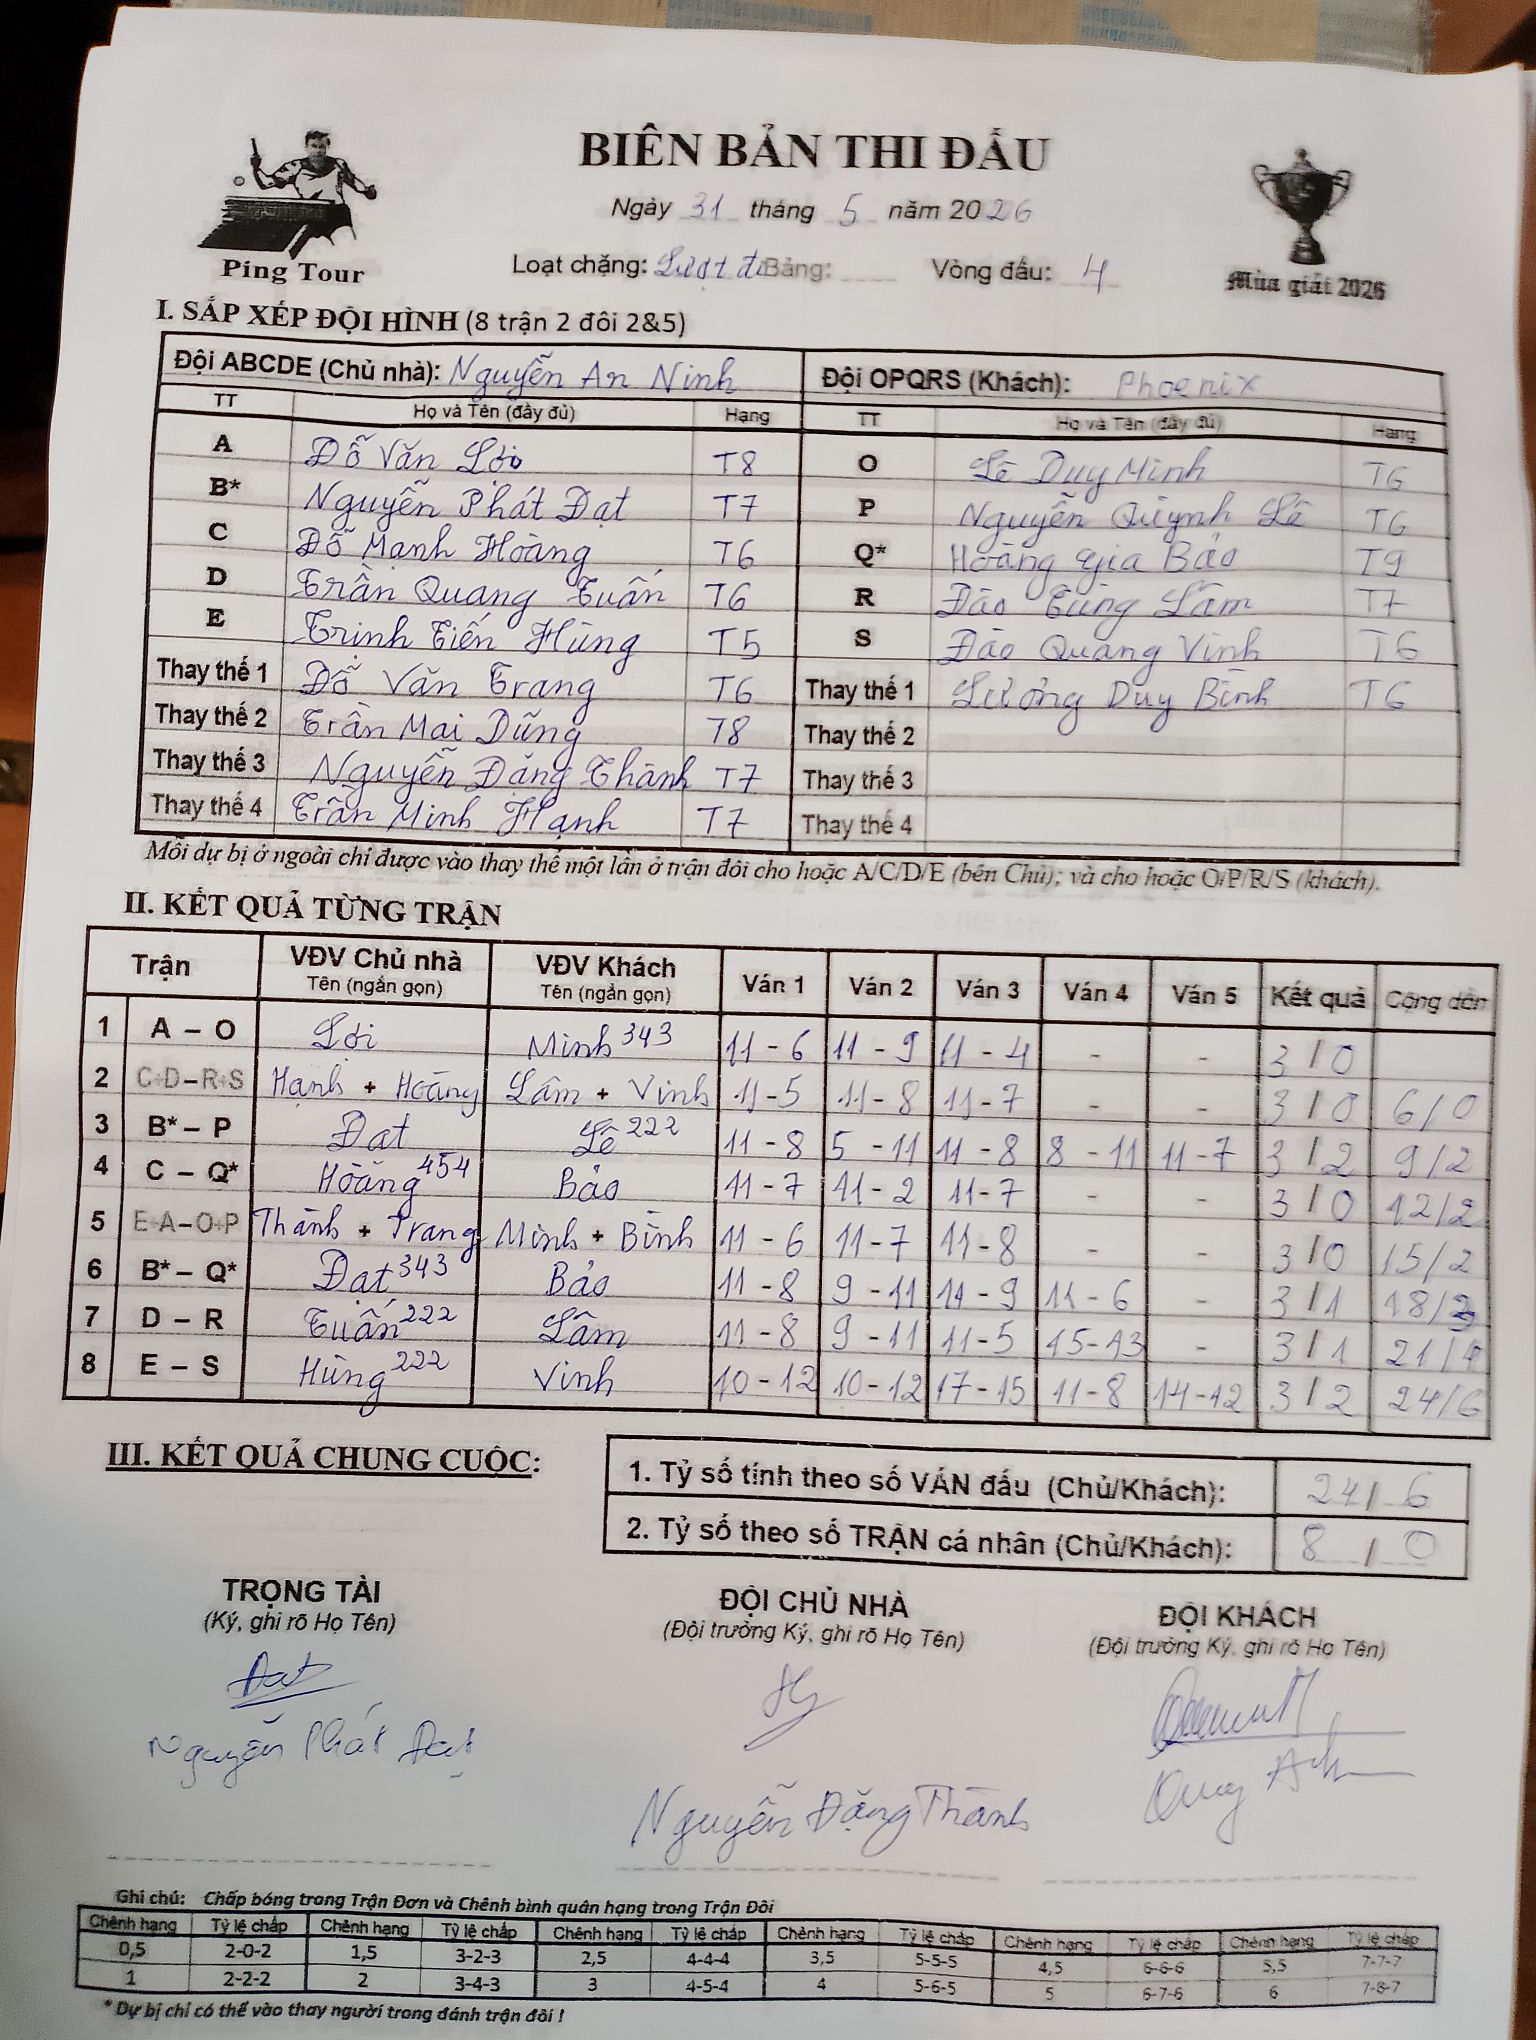 BIÊN BẢN THI ĐẤU
Ngày 31 tháng 5 năm 2026
Ping Tour
Loạt chặng: Lượt đi Bảng: Vòng đấu: 4
Mùa giải 2026
I. SẮP XẾP ĐỘI HÌNH (8 trận 2 đôi 2&5)
Đội ABCDE (Chủ nhà): Nguyễn An Ninh Đội OPQRS (Khách): Phoenix
TT Họ và Tên (đầy đủ) Hạng TT Họ và Tên (đầy đủ) Hạng
A Đỗ Văn Lợi T8 O Lê Duy Minh T6
B* Nguyễn Phát Đạt T7 P Nguyễn Quỳnh Lê T6
C Đỗ Mạnh Hoàng T6 Q* Hoàng Gia Bảo T9
D Trần Quang Tuấn T6 R Đào Tùng Lâm T7
E Trịnh Tiến Hùng T5 S Đào Quang Vinh T6
Thay thế 1 Đỗ Văn Trang T6 Thay thế 1 Lương Duy Bình T6
Thay thế 2 Trần Mai Dũng T8 Thay thế 2
Thay thế 3 Nguyễn Đăng Thành T7 Thay thế 3
Thay thế 4 Trần Minh Hạnh T7 Thay thế 4
Mỗi dự bị ở ngoài chỉ được vào thay thế một lần ở trận đôi cho hoặc A/C/D/E (bên Chủ); và cho hoặc O/P/R/S (khách).
II. KẾT QUẢ TỪNG TRẬN
Trận VĐV Chủ nhà Tên (ngắn gọn) VĐV Khách Tên (ngắn gọn) Ván 1 Ván 2 Ván 3 Ván 4 Ván 5 Kết quả Cộng dồn
1 A – O Lợi Minh 343 11 - 6 11 - 9 11 - 4 - - 3 / 0
2 C+D–R+S Hạnh + Hoàng Lâm + Vinh 11-5 11-8 11-7 - - 3 / 0 6/0
3 B* – P Đạt Lê 222 11 - 8 5 - 11 11 - 8 8 - 11 11-7 3 / 2 9/2
4 C – Q* Hoàng 454 Bảo 11-7 11-2 11-7 - - 3 / 0 12/2
5 E+A–O+P Thành + Trang Minh + Bình 11 - 6 11-7 11-8 - - 3 / 0 15/2
6 B* – Q* Đạt 343 Bảo 11 - 8 9 - 11 11 - 9 11 - 6 - 3 / 1 18/3
7 D – R Tuấn 222 Lâm 11 - 8 9 - 11 11-5 15-13 - 3 / 1 21/4
8 E – S Hùng 222 Vinh 10 - 12 10 - 12 17 - 15 11 - 8 14-12 3 / 2 24/6
III. KẾT QUẢ CHUNG CUỘC:
1. Tỷ số tính theo số VÁN đấu (Chủ/Khách): 24 / 6
2. Tỷ số theo số TRẬN cá nhân (Chủ/Khách): 8 / 0
TRỌNG TÀI ĐỘI CHỦ NHÀ ĐỘI KHÁCH
(Ký, ghi rõ Họ Tên) (Đội trưởng Ký, ghi rõ Họ Tên) (Đội trưởng Ký, ghi rõ Họ Tên)
Đạt
Nguyễn Phát Đạt Nguyễn Đăng Thành
Ghi chú: Chấp bóng trong Trận Đơn và Chênh bình quân hạng trong Trận Đôi
Chênh hạng Tỷ lệ chấp Chênh hạng Tỷ lệ chấp Chênh hạng Tỷ lệ chấp Chênh hạng Tỷ lệ chấp Chênh hạng Tỷ lệ chấp Chênh hạng Tỷ lệ chấp
0,5 2-0-2 1,5 3-2-3 2,5 4-4-4 3,5 5-5-5 4,5 6-6-6 5,5 7-7-7
1 2-2-2 2 3-4-3 3 4-5-4 4 5-6-5 5 6-7-6 6 7-8-7
* Dự bị chỉ có thể vào thay người trong đánh trận đôi !